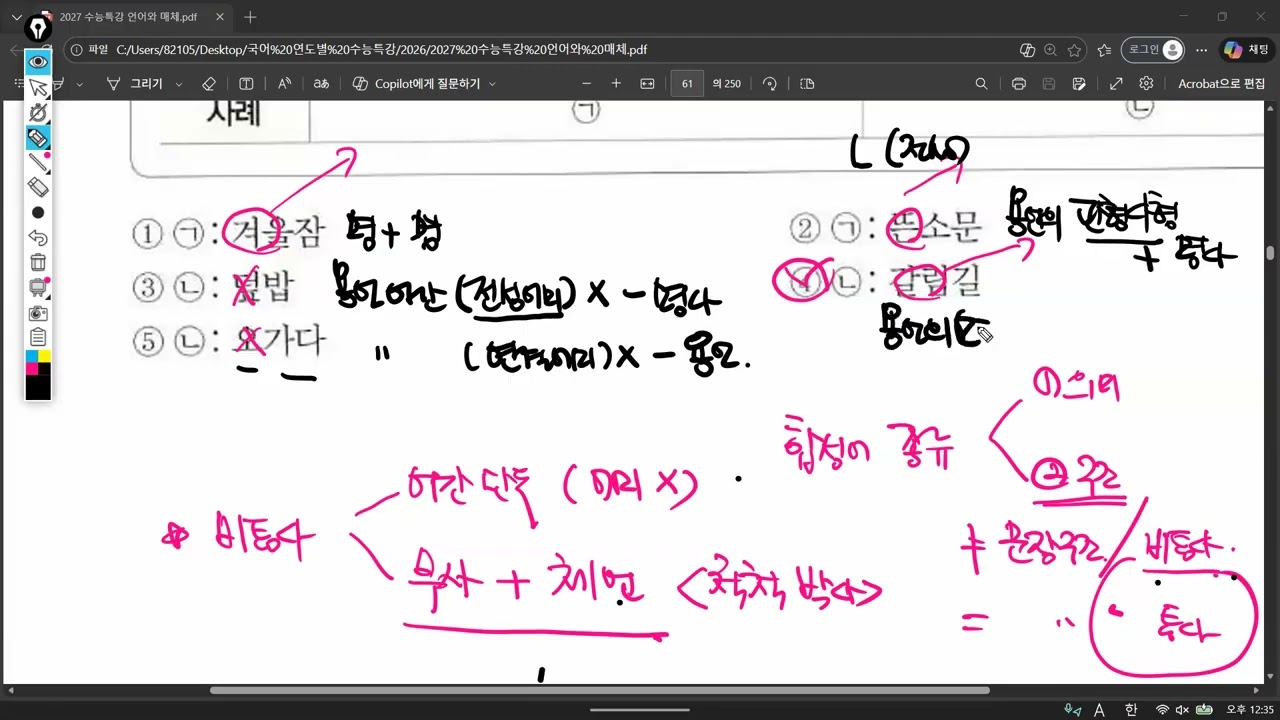 2027 수능특강 언어와 매체.pdf
파일 C:/Users/82105/Desktop/국어%20연도별%20수능특강/2026/2027%20수능특강%20언어와%20매체.pdf
로그인
채팅
그리기
Copilot에게 질문하기
61 의 250
Acrobat으로 편집
사례 ㉠ ㉡
ㄴ
① ㉠: 겨울잠 명+명
② ㉠: 뜬소문
용언의 관형사형 + 명사
③ ㉡: 덮밥 용언 어간 (전성어미) X - 명사
④ ㉡: 갈림길
용언의
⑤ ㉡: 오가다 " (연결어미) X - 용언.
합성어 종류
① 의미
② 구조
* 비통사
어간 단독 (어미 X)
부사 + 체언 <척척박사>
≠ 문장구조 / 비통사.
= " 통사
A 한 오후 12:35